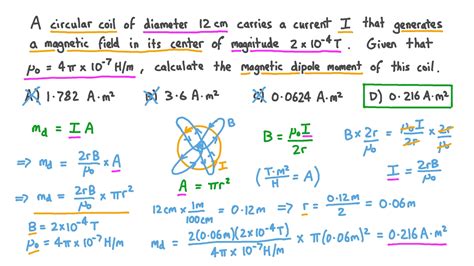 A circular coil of diameter 12 cm carries a current I that generates
a magnetic field in its center of magnitude 2×10⁻⁴ T. Given that
μ₀ = 4π×10⁻⁷ H/m, calculate the magnetic dipole moment of this coil.
A) 1.782 A·m² B) 3.6 A·m² C) 0.0624 A·m² D) 0.216 A·m²
m_d = I A
⇒ m_d = 2rB/μ₀ × A
⇒ m_d = 2rB/μ₀ × πr²
B = 2×10⁻⁴ T
μ₀ = 4π×10⁻⁷ H/m
B
I
A = πr²
B = μ₀I/2r
(T·m²/H = A)
B × 2r/μ₀ = μ₀I/2r × 2r/μ₀
I = 2rB/μ₀
12 cm × 1m/100cm = 0.12m ⇒ r = 0.12m/2 = 0.06m
m_d = 2(0.06m)(2×10⁻⁴T)/4π×10⁻⁷ H/m × π(0.06m)² = 0.216 A·m²